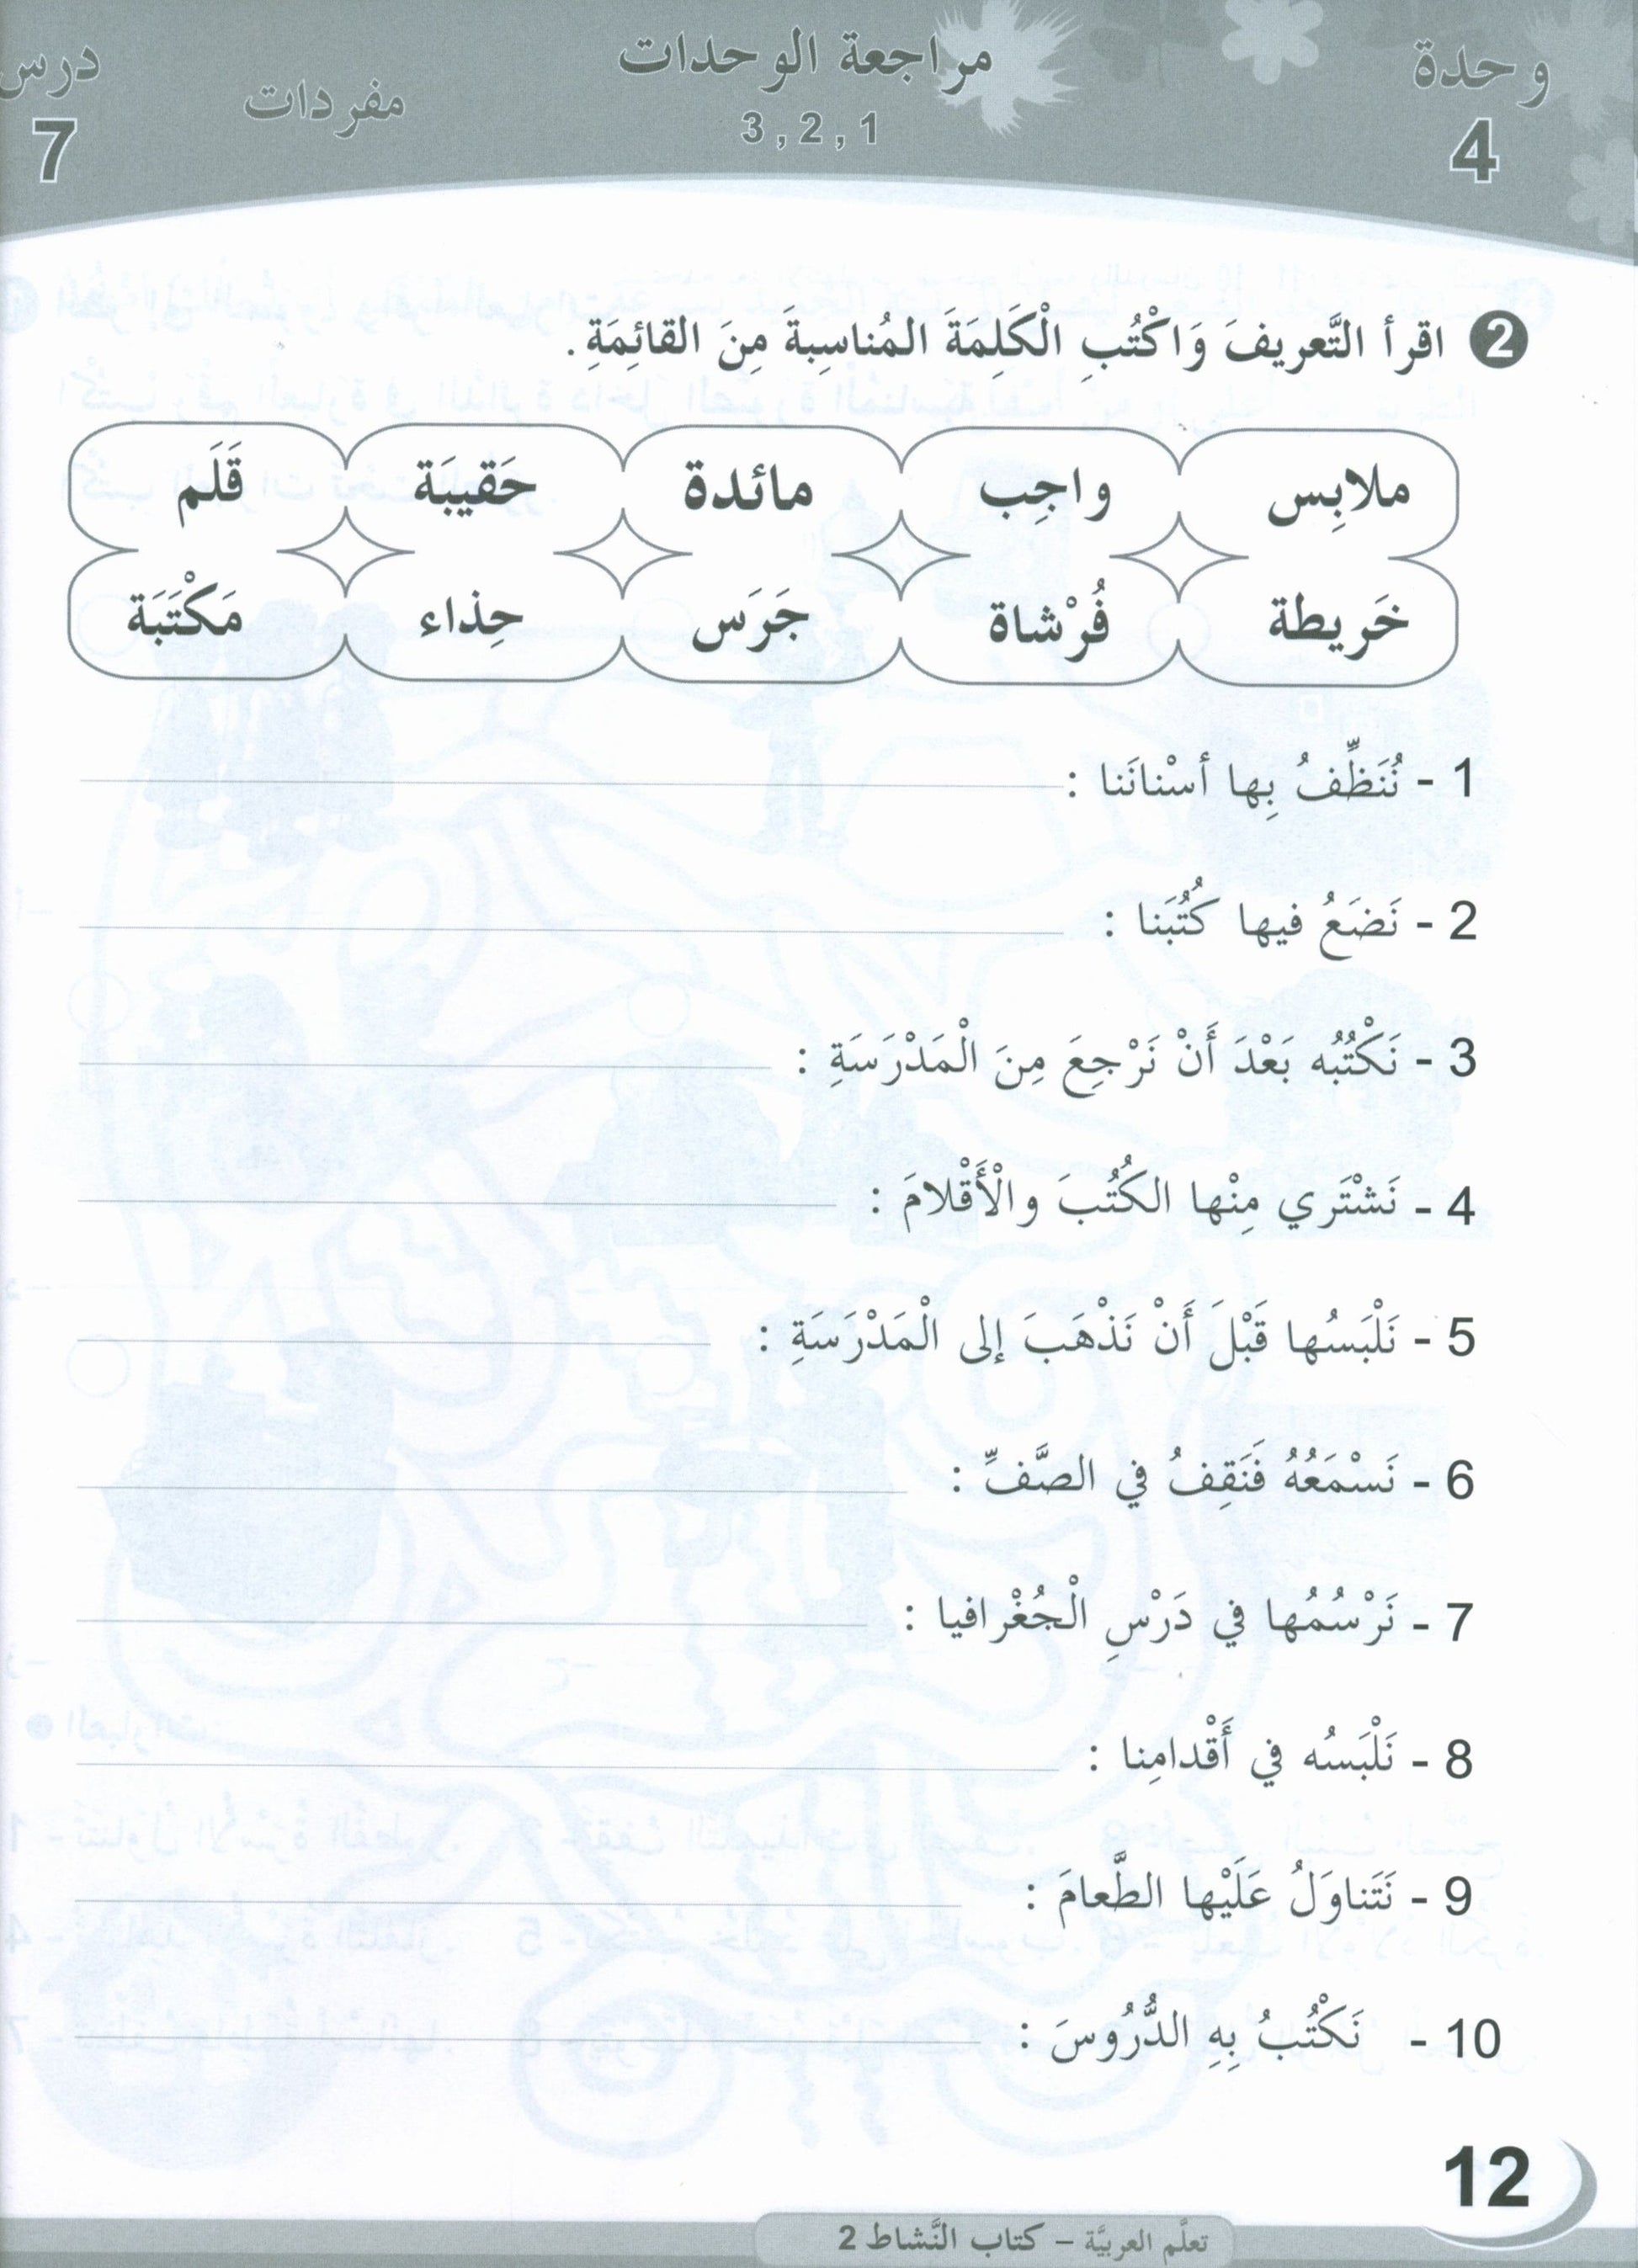 وحدة 4 مراجعة الوحدات 1 , 2 , 3 مفردات درس 7
2 اقرأ التَّعريفَ وَاكْتُبِ الْكَلِمَةَ المُناسِبةَ مِنَ القائِمَةِ .
ملابِس واجِب مائدة حَقيبَة قَلَم
خَريطة فُرْشاة جَرَس حِذاء مَكْتَبَة
1 - نُنَظِّفُ بِها أسْنانَنا :
2 - نَضَعُ فيها كُتُبَنا :
3 - نَكْتُبُه بَعْدَ أَنْ نَرْجِعَ مِنَ الْمَدْرَسَةِ :
4 - نَشْتَري مِنْها الكُتُبَ والْأَقْلامَ :
5 - نَلْبَسُها قَبْلَ أَنْ نَذْهَبَ إلى الْمَدْرَسَةِ :
6 - نَسْمَعُهُ فَنَقِفُ في الصَّفِّ :
7 - نَرْسُمُها في دَرْسِ الْجُغْرافيا :
8 - نَلْبَسُه في أَقْدامِنا :
9 - نَتَناوَلُ عَلَيْها الطَّعامَ :
10 - نَكْتُبُ بِهِ الدُّرُوسَ :
12
تعلَّم العربيَّة – كتاب النَّشاط 2